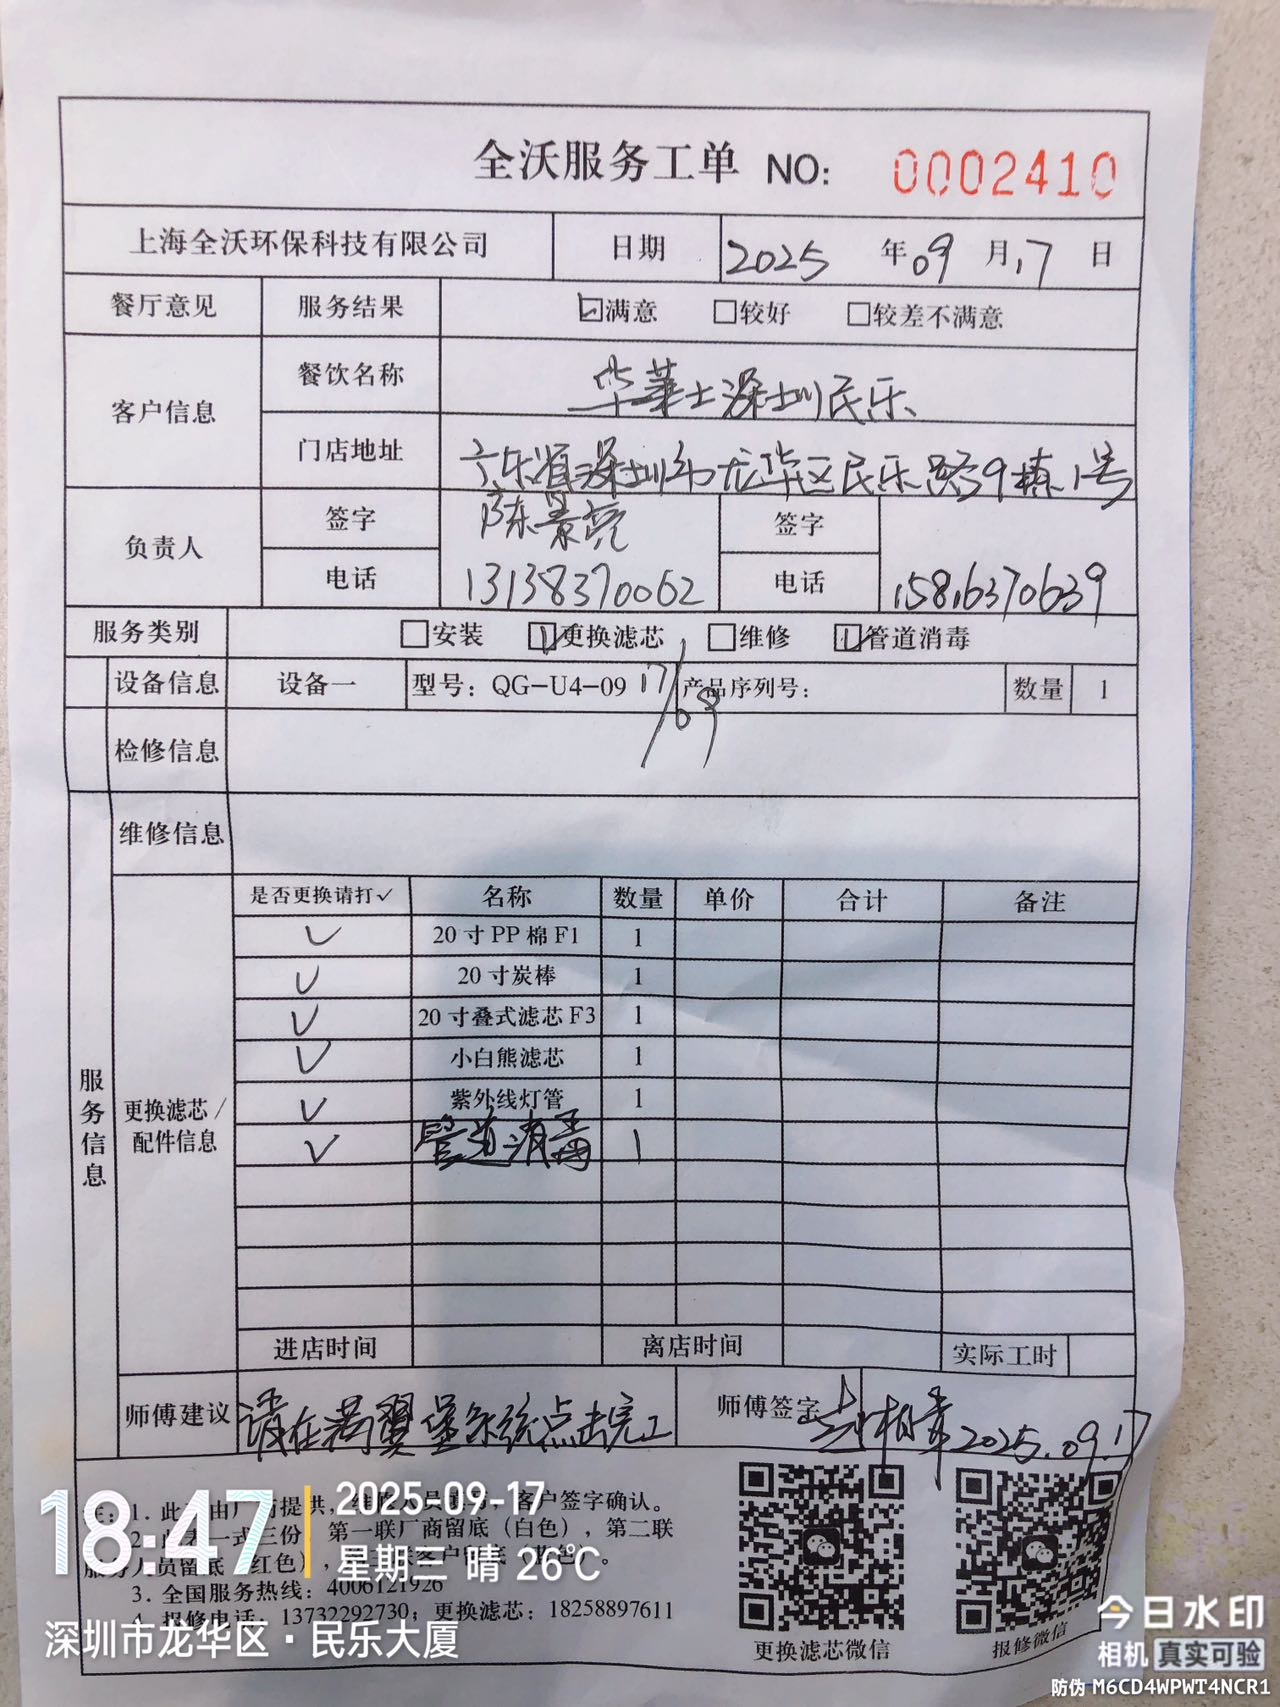 全沃服务工单 NO: 0002410
上海全沃环保科技有限公司 日期 2025 年 09 月 17 日
餐厅意见 服务结果 ☑满意 □较好 □较差不满意
客户信息 餐饮名称 华莱士深圳民乐
门店地址 广东省深圳市龙华区民乐路9栋1号
负责人 签字 陈景亮 签字
电话 13138370062 电话 15816370639
服务类别 □安装 ☑更换滤芯 □维修 ☑管道消毒
设备信息 设备一 型号：QG-U4-09 产品序列号： 数量 1
17/09
检修信息
维修信息
服务信息
更换滤芯/配件信息
是否更换请打✓ 名称 数量 单价 合计 备注
✓ 20寸PP棉F1 1
✓ 20寸炭棒 1
✓ 20寸叠式滤芯F3 1
✓ 小白熊滤芯 1
✓ 紫外线灯管 1
✓ 管道消毒 1
进店时间 离店时间 实际工时
师傅建议 请在翼堡系统点击完工 师傅签字 相章 2025.09.17
1. 此 由厂商提供， 客户签字确认。
2. 一式三份 第一联厂商留底（白色），第二联
服务人员留底（红色），
3. 全国服务热线：4006121926
4. 报修电话：13732292730；更换滤芯：18258897611
更换滤芯微信
报修微信
18:47
2025-09-17
星期三 晴 26℃
深圳市龙华区·民乐大厦
今日水印
相机 真实可验
防伪 M6CD4WPWT4NCR1